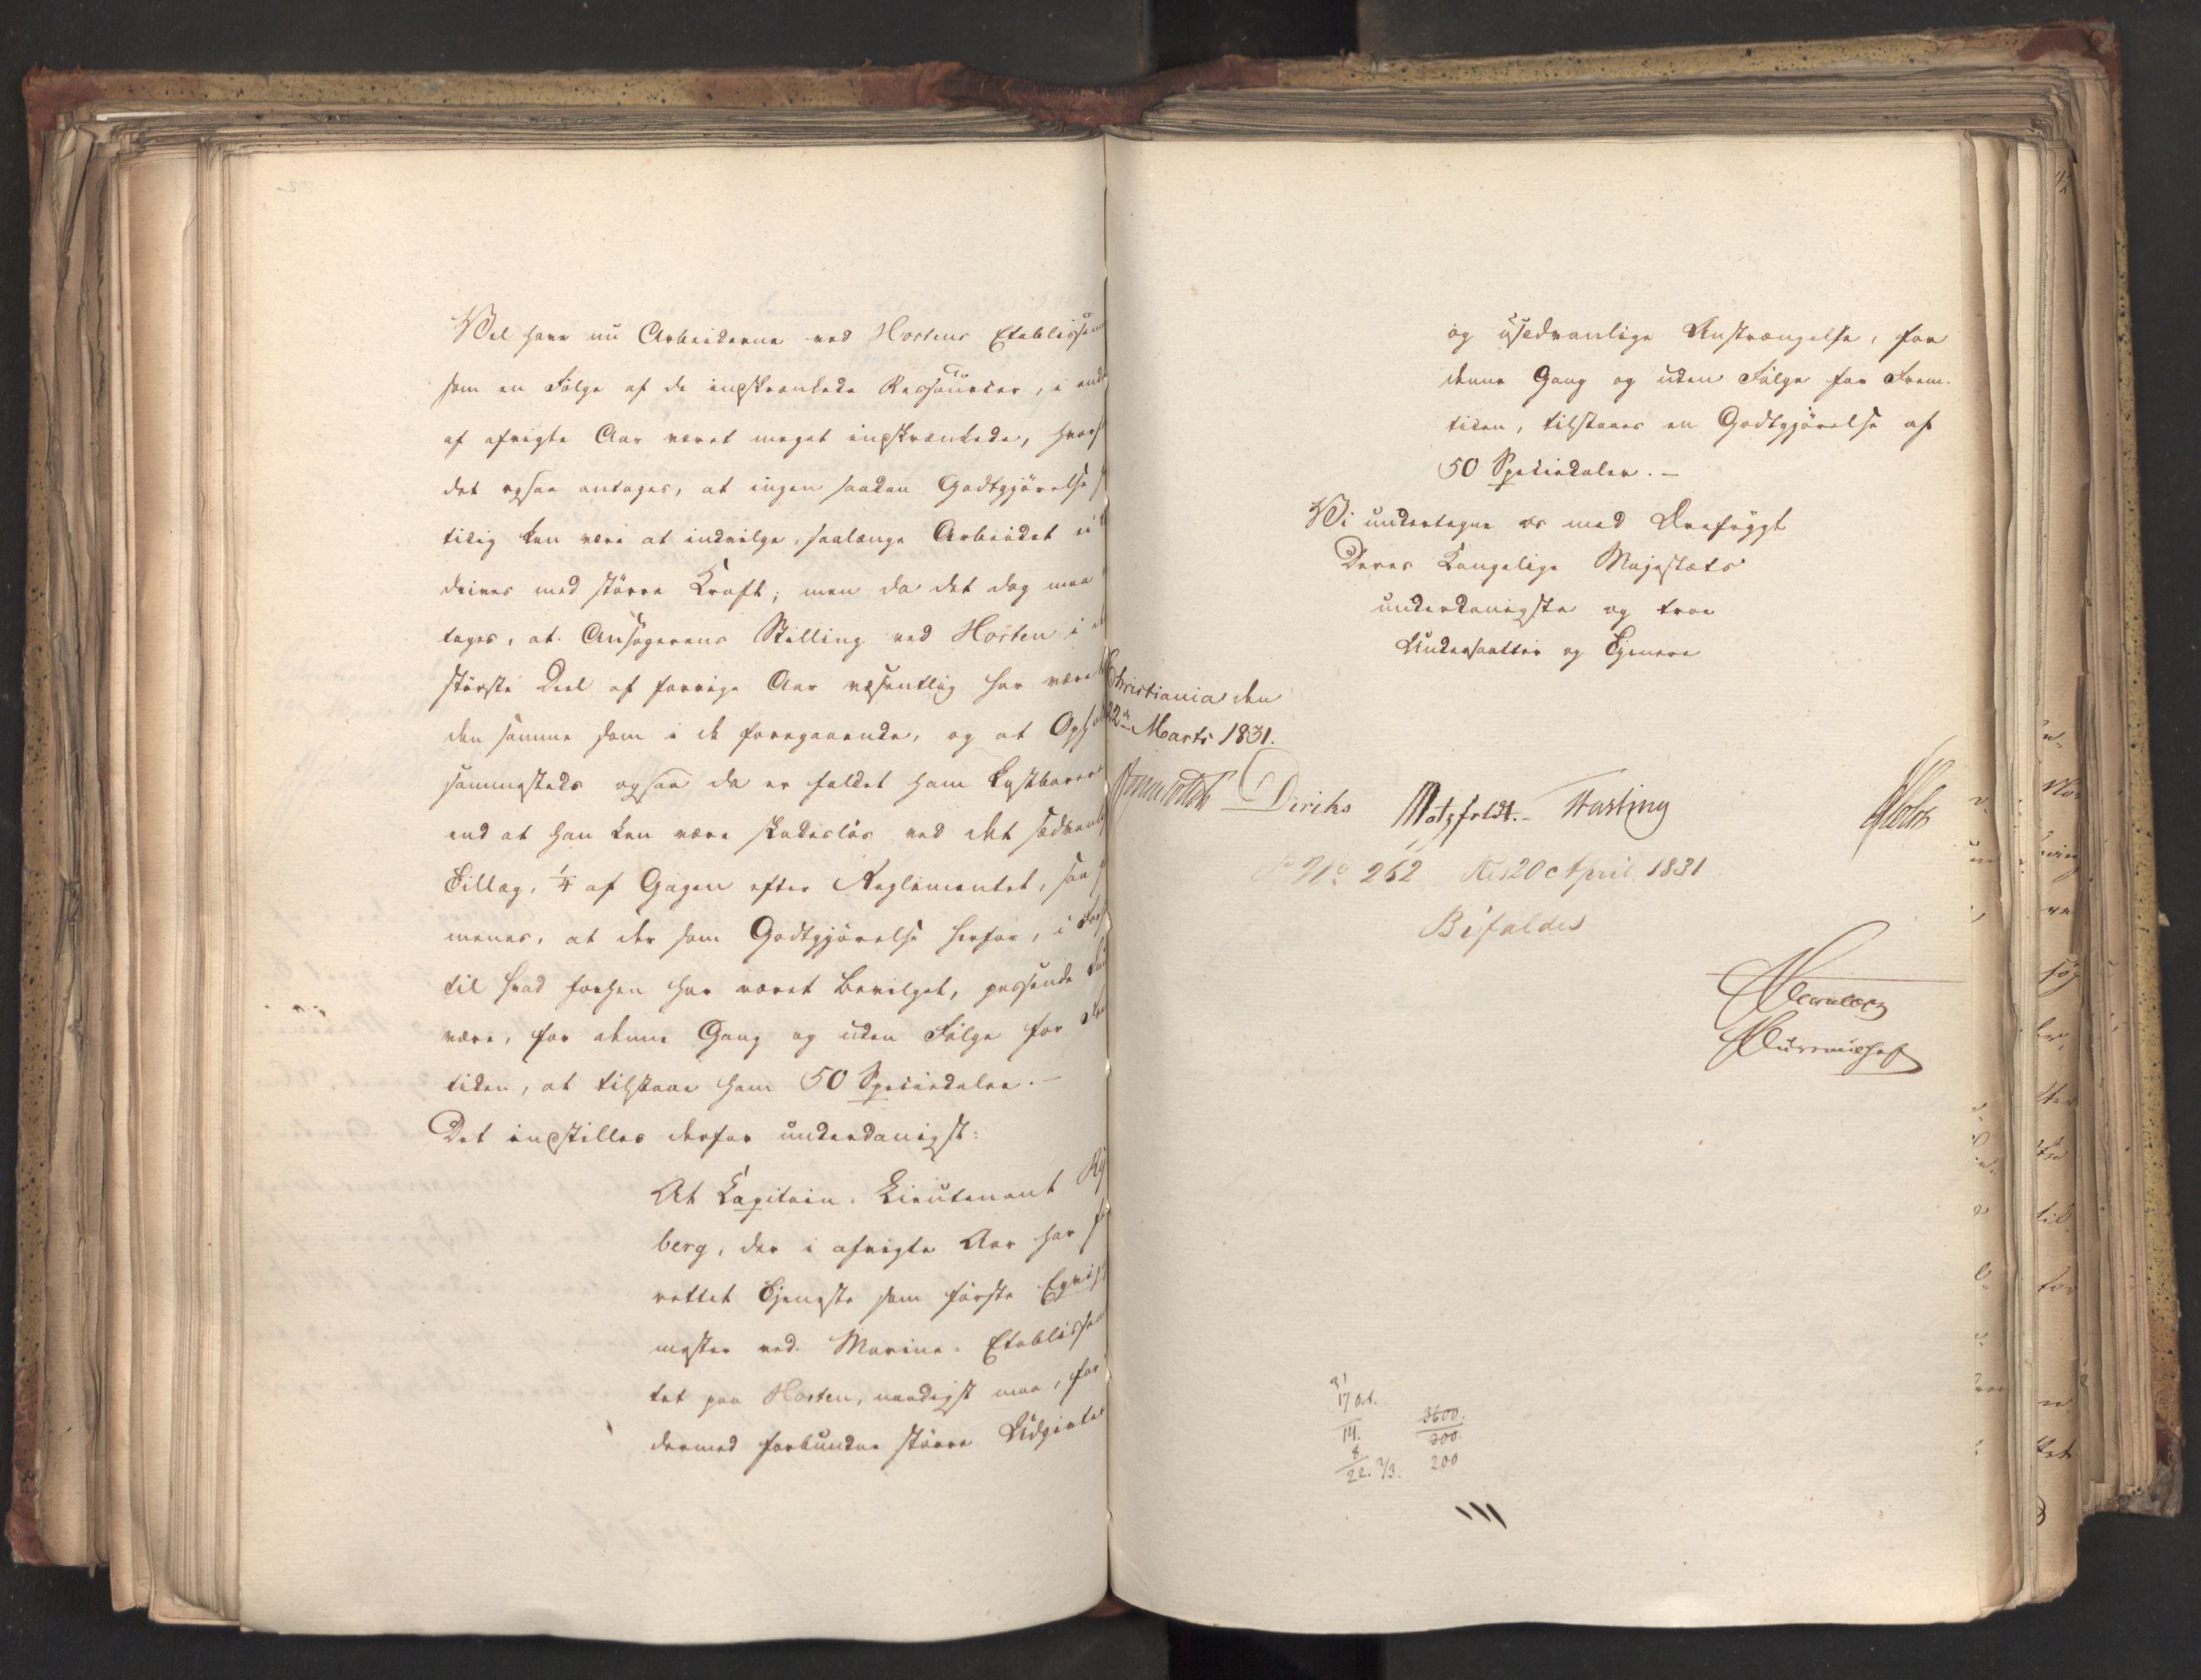 Vel have nu Arbeiderne ved Hortens Etablissem
som en Følge af de indskrænkede Ressourcer, i
af afvigte Aar været meget indskrænkede,
det ogsaa antages, at ingen saadan Godtgjørelse
tidig kan være at indvilge, saalænge Arbeidet ei
drives med større Kraft; men da det dog maa
tages, at Ansøgerens Stilling ved Horten i
største Deel af forrige Aar væsentlig har været
den samme som i de foregaaende, og at Opho
sammesteds ogsaa da er faldet ham kostbarere
end at han kan være skadesløs ved det sædvanl
Tillæg, ¼ af Gagen efter Reglementet, saa
menes, at der som Godtgjørelse herfor, i
til hvad forhen har været bevilget, passende
være, for denne Gang og uden Følge for Frem
tiden, at tilstaae ham 50 Speciedaler.—
Det indstilles derfor underdanigst:
At Capitain-Lieutenant Ry
berg, der i afvigte Aar har
rettet Tjeneste som første Eqvi
mester ved Marine-Etablissem
tet paa Horten, naadigst maa, for
dermed forbundne større Udgivter
og usædvanlige Anstrængelse, for
denne Gang og uden Følge for Frem-
tiden, tilstaaes en Godtgjørelse af
50 Speciedaler.—
Vi undertegne os med Ærefrygt
Deres Kongelige Majestæts
underdanigste og troe
Undersaatter og Tjenere
Christiania den
22de Marts 1831.
Diriks Motzfeldt.- Fasting Holst
No 262 den 20 April 1831
Bifaldes
31
17 Oct.
14. 3600.
8 300
22. 2/3. 200